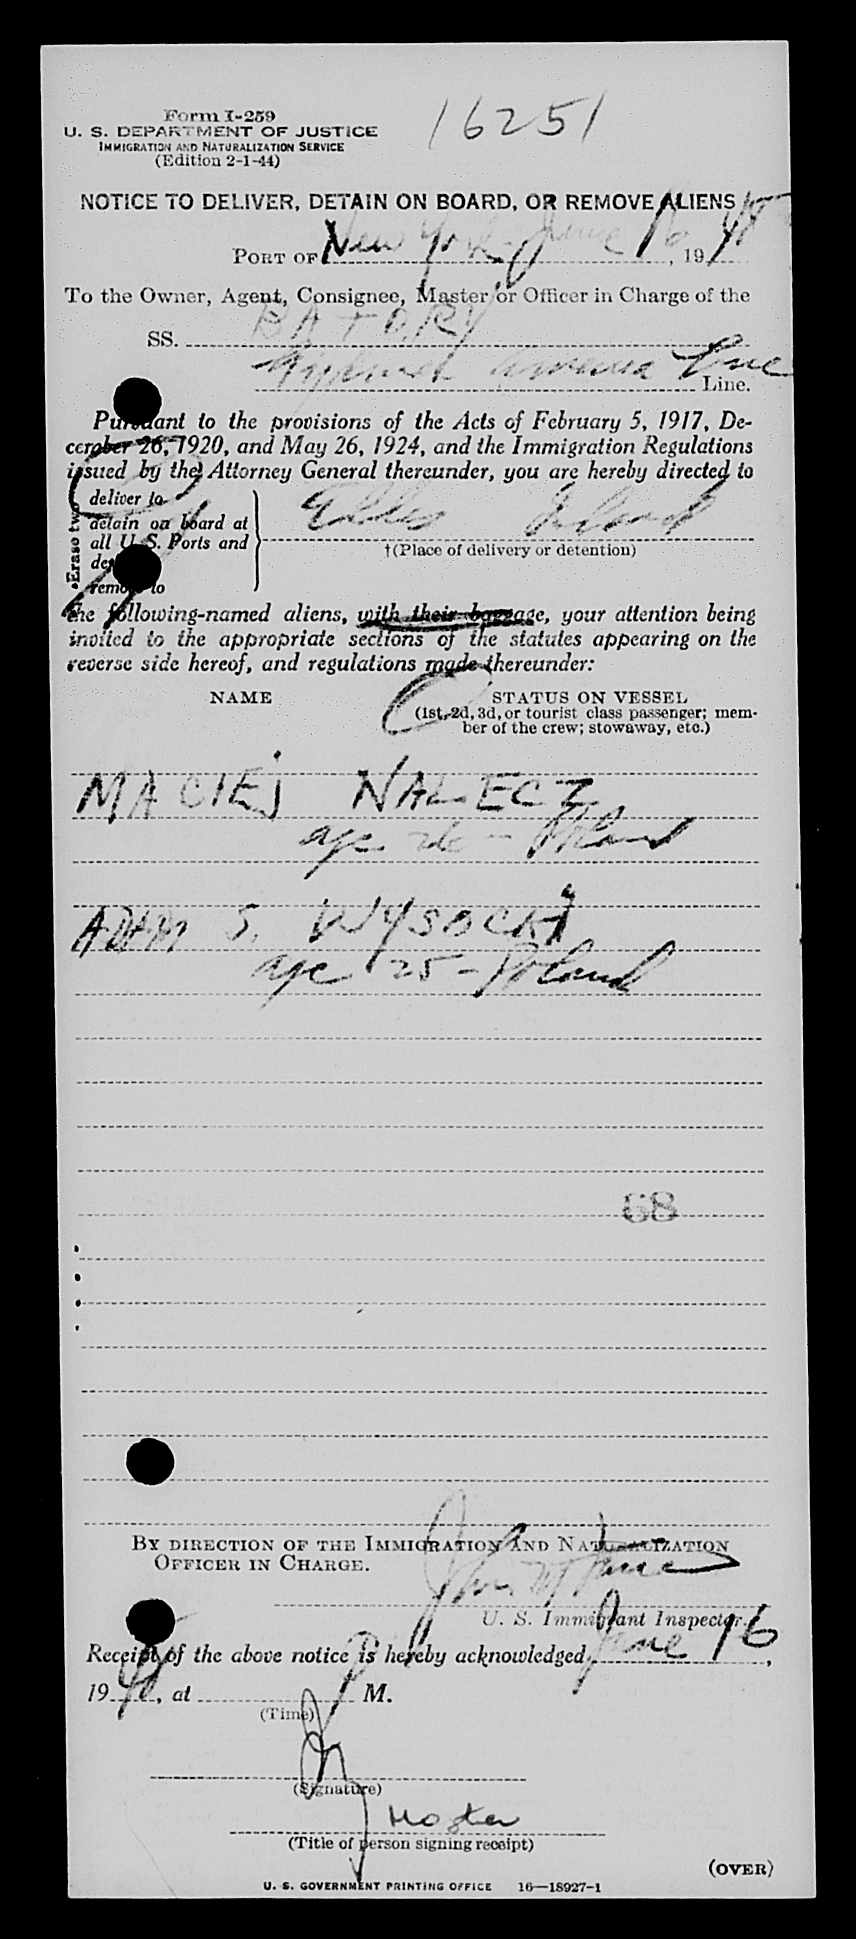 Form I-259
U. S. DEPARTMENT OF JUSTICE
IMMIGRATION AND NATURALIZATION SERVICE
(Edition 2-1-44)
16251
NOTICE TO DELIVER, DETAIN ON BOARD, OR REMOVE ALIENS
PORT OF New York June 16, 1948
To the Owner, Agent, Consignee, Master or Officer in Charge of the
SS. BATORY
America Line Line.
Pursuant to the provisions of the Acts of February 5, 1917, De-
cember 26, 1920, and May 26, 1924, and the Immigration Regulations
issued by the Attorney General thereunder, you are hereby directed to
*Erase two
deliver to
detain on board at
all U. S. Ports and
remove to
Ellis Island
†(Place of delivery or detention)
the following-named aliens, with their baggage, your attention being
invited to the appropriate sections of the statutes appearing on the
reverse side hereof, and regulations made thereunder:
NAME STATUS ON VESSEL
(1st, 2d, 3d, or tourist class passenger; mem-
ber of the crew; stowaway, etc.)
MACIEJ NALECZ
age 26 - Poland
ADAM S. WYSOCKI
age 25 - Poland
68
BY DIRECTION OF THE IMMIGRATION AND NATURALIZATION
OFFICER IN CHARGE.
U. S. Immigrant Inspector.
Receipt of the above notice is hereby acknowledged June 16,
1948, at P M.
(Time)
(Signature)
(Title of person signing receipt)
(OVER)
U. S. GOVERNMENT PRINTING OFFICE 16—18927-1